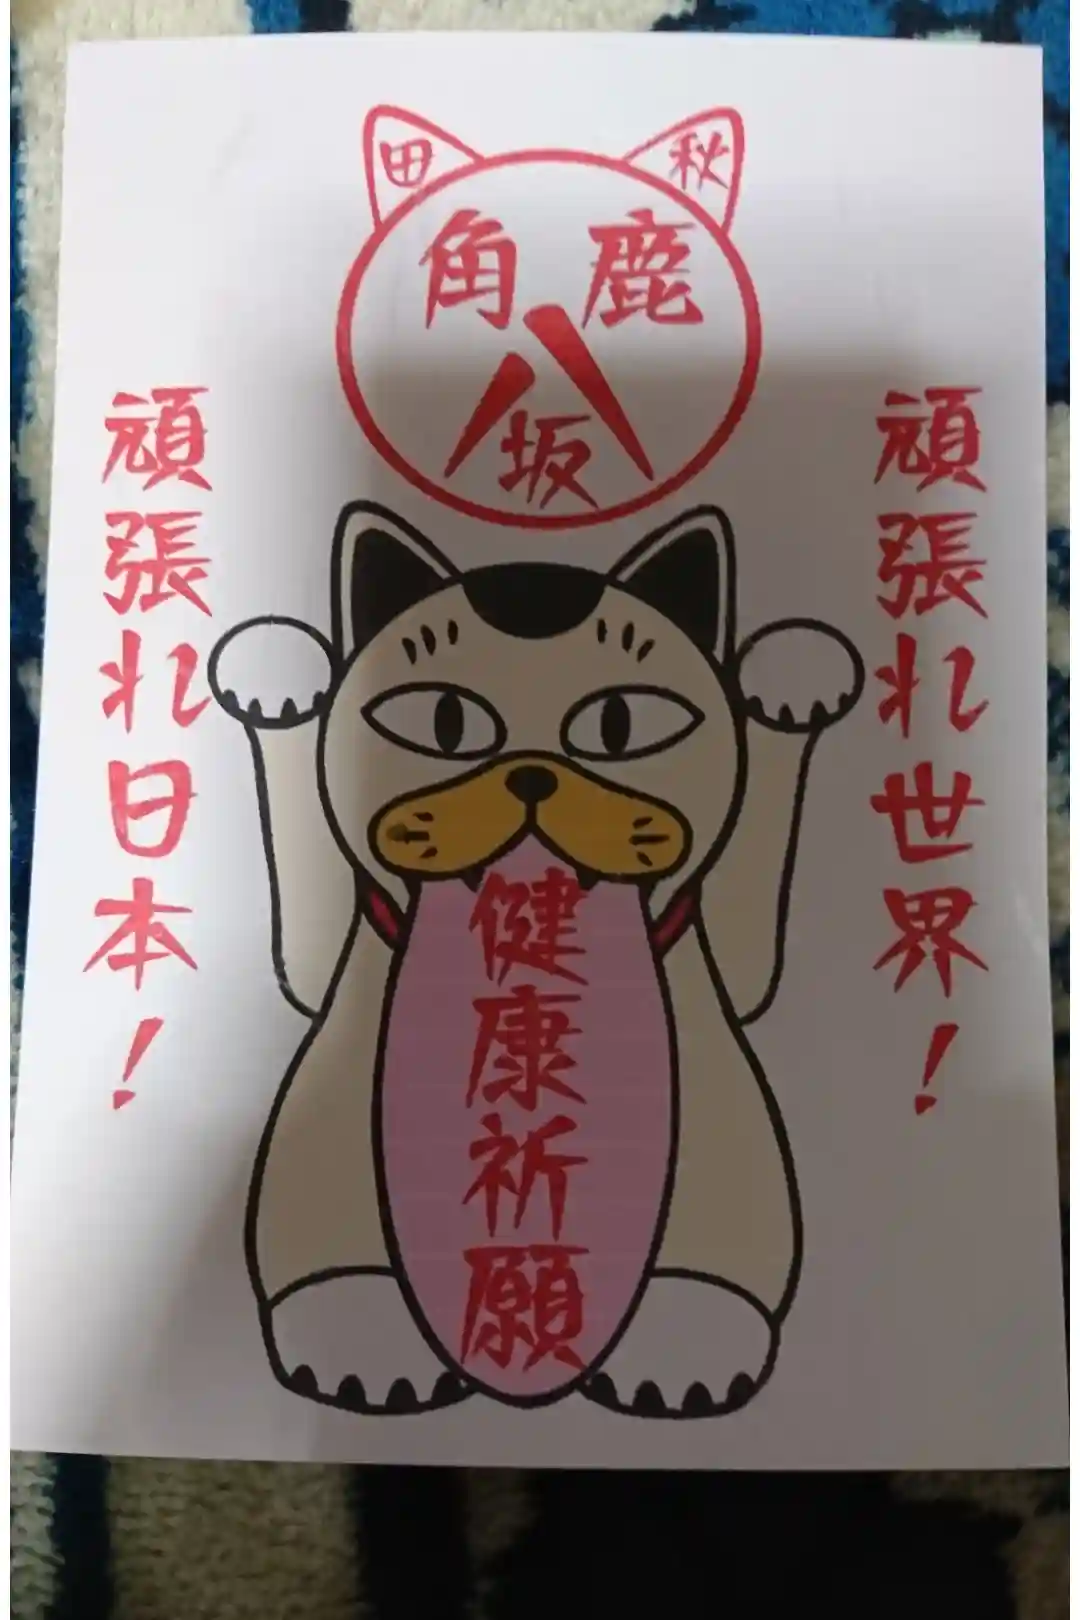 秋田
鹿角
八坂
頑張れ世界！
健康祈願
頑張れ日本！